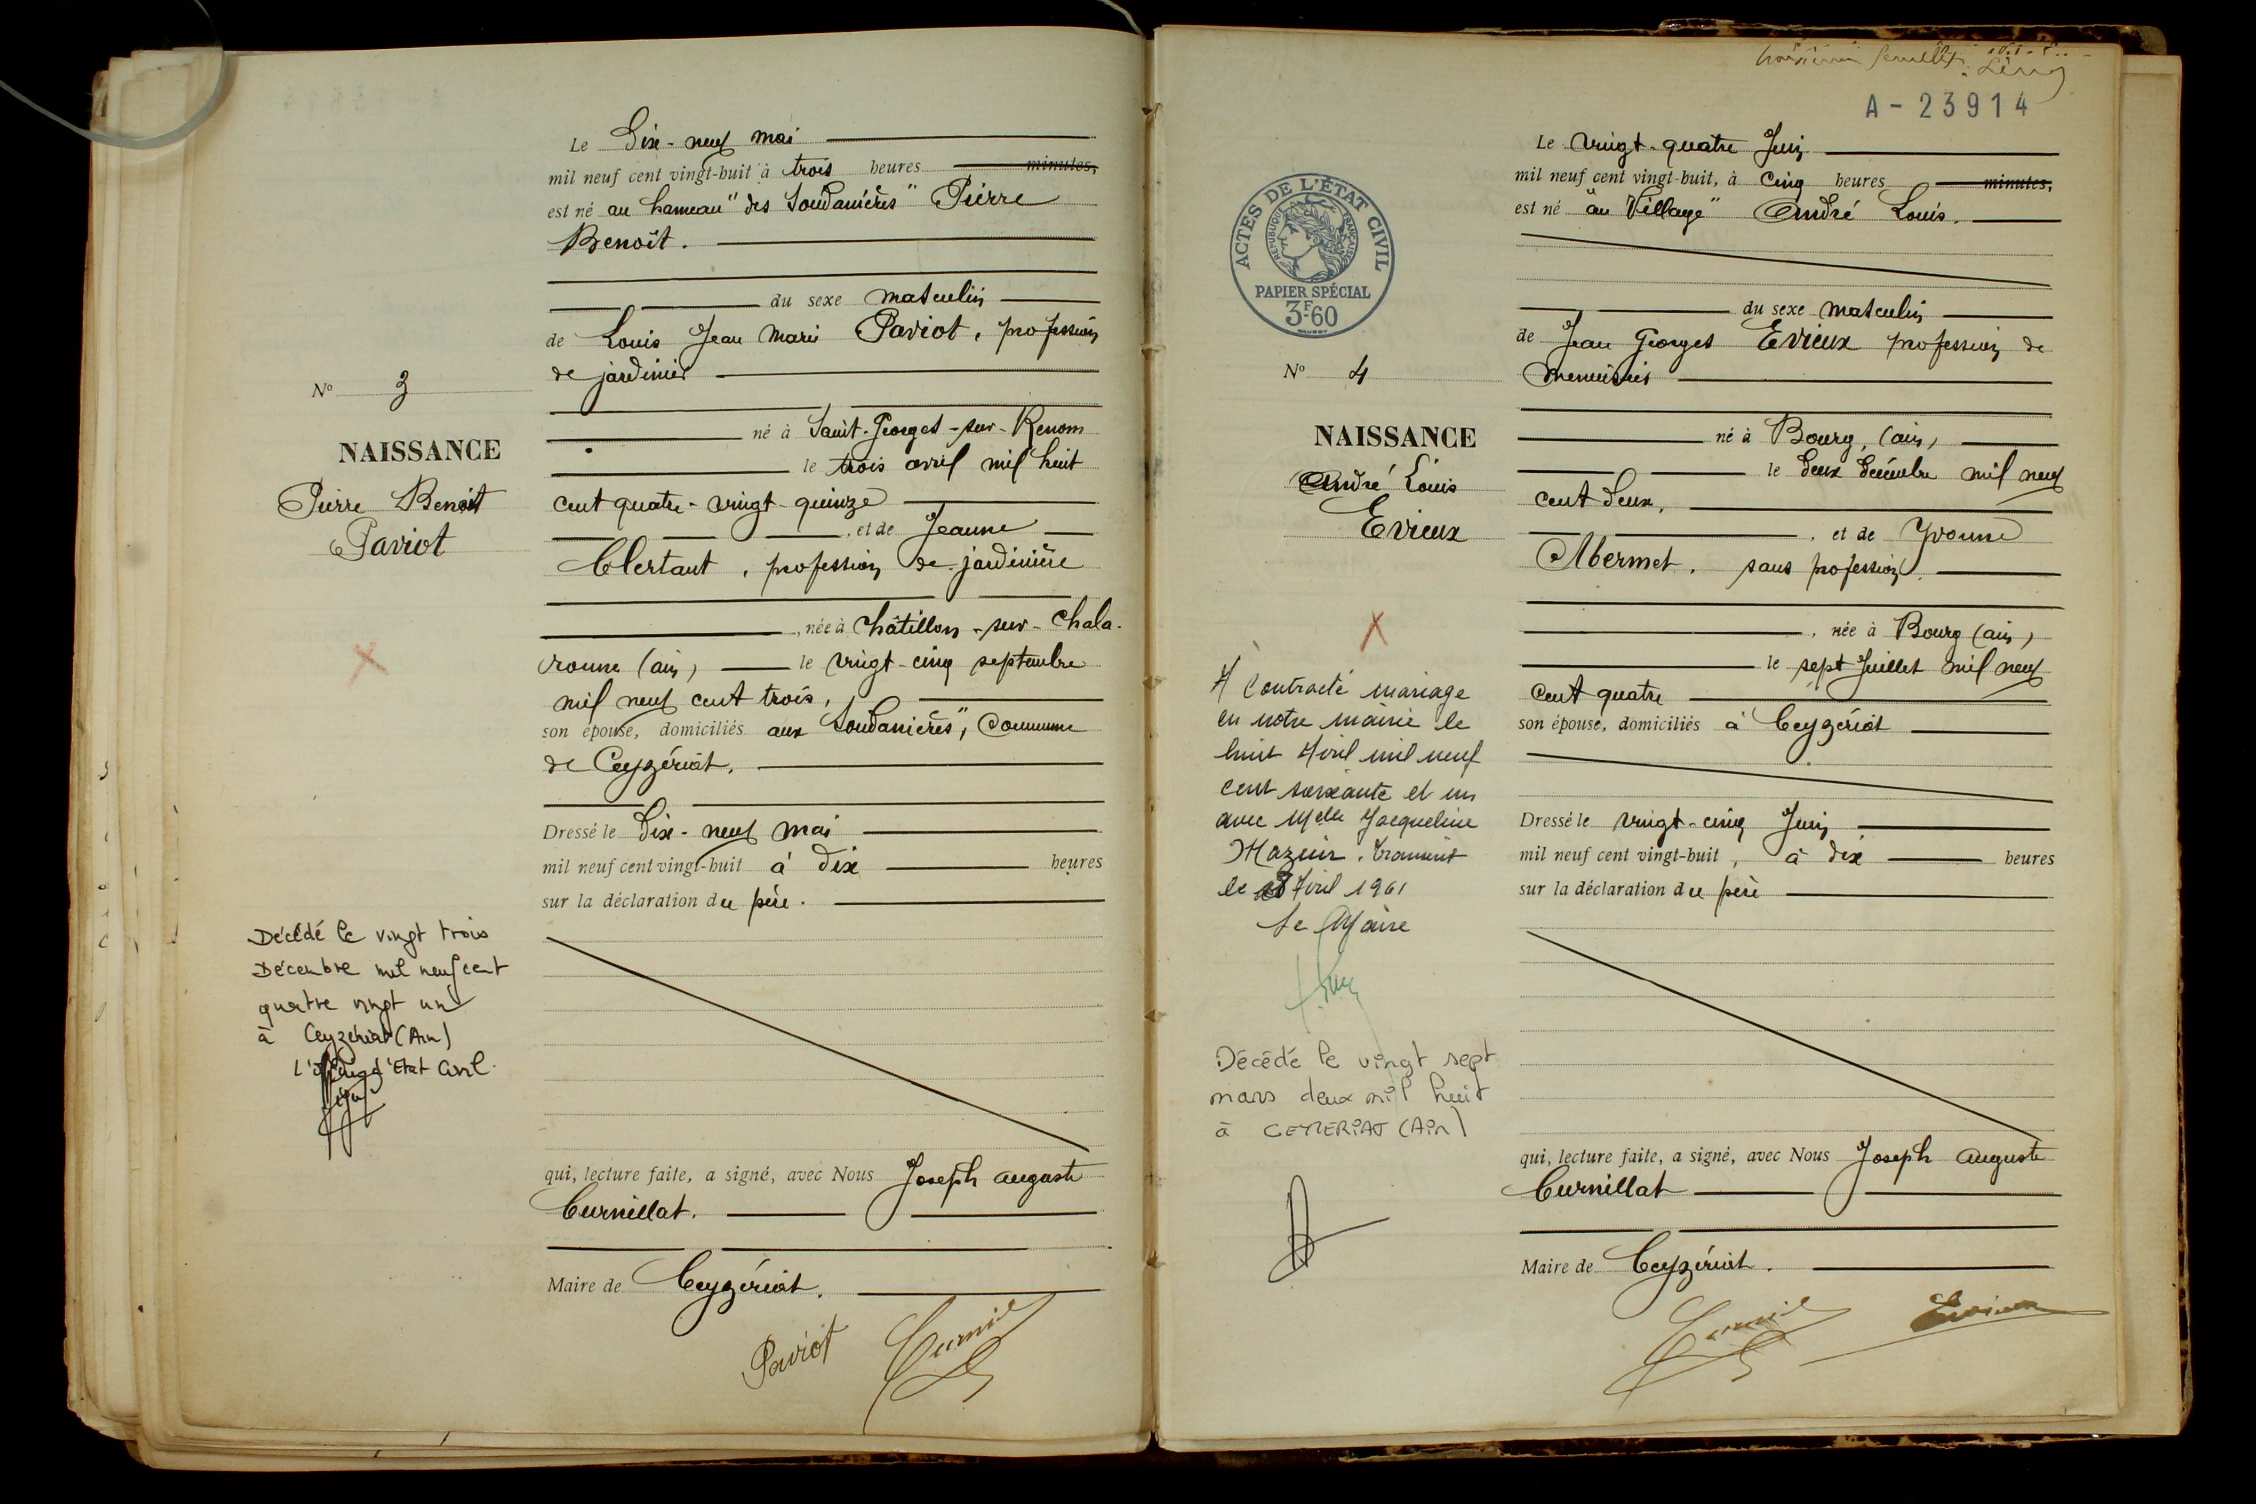 Le Dix-neuf mai
mil neuf cent vingt-huit à trois heures minutes,
est né au hameau "des Soudanières" Pierre
Benoît.
du sexe masculin
de Louis Jean Marie Paviot, profession
de jardinier
né à Saint-Georges-sur-Renom
le trois avril mil huit
cent quatre-vingt-quinze
, et de Jeanne
Clertant, profession de jardinière
, née à Châtillon-sur-Chala-
ronne (ain) le vingt-cinq septembre
mil neuf cent trois,
son épouse, domiciliés aux "Soudanières", Commune
de Ceyzériat.
Dressé le Dix-neuf mai
mil neuf cent vingt-huit à dix heures
sur la déclaration du père.
qui, lecture faite, a signé, avec Nous Joseph auguste
Curnillat.
Maire de Ceyzériat.
Paviot
N° 3
NAISSANCE
Pierre Benoît
Paviot
Décédé le vingt trois
Décembre mil neuf cent
quatre vingt un
à Ceyzériat (Ain)
L'Officier d'Etat Civil.
A-23914
Le vingt-quatre Juin
mil neuf cent vingt-huit, à Cinq heures minutes,
est né "au Village" André Louis.
du sexe masculin
de Jean Georges Evieux profession de
menuisier
né à Bourg, (ain)
le deux décembre mil neuf
cent deux,
, et de Yvonne
Mermet. sans profession.
, née à Bourg (ain)
le sept Juillet mil neuf
cent quatre
son épouse, domiciliés à Ceyzériat
Dressé le vingt-cinq Juin
mil neuf cent vingt-huit, à dix heures
sur la déclaration du père
qui, lecture faite, a signé, avec Nous Joseph auguste
Curnillat
Maire de Ceyzériat.
Evieux
ACTES DE L'ÉTAT CIVIL
RÉPUBLIQUE FRANÇAISE
PAPIER SPÉCIAL
3F60
N° 4
NAISSANCE
André Louis
Evieux
A Contracté mariage
en notre mairie le
huit Avril mil neuf
cent soixante et un
avec Melle Jacqueline
le 8 Avril 1961
Le Maire
Décédé le vingt sept
mars deux mil huit
à CEYZERIAT (Ain)